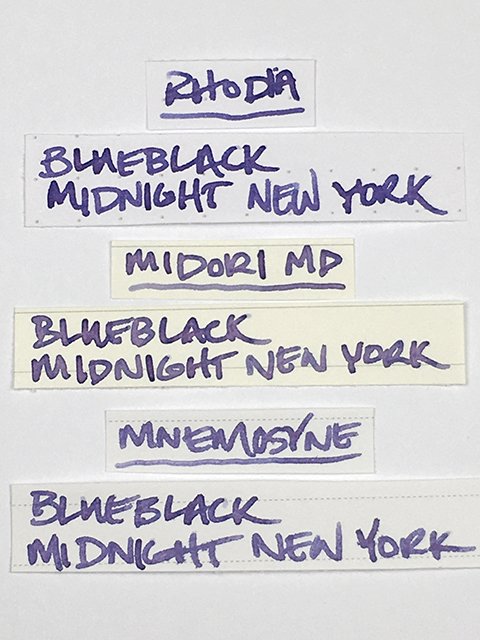 RHODIA
BLUEBLACK
MIDNIGHT NEW YORK
MIDORI MD
BLUEBLACK
MIDNIGHT NEW YORK
MNEMOSYNE
BLUEBLACK
MIDNIGHT NEW YORK